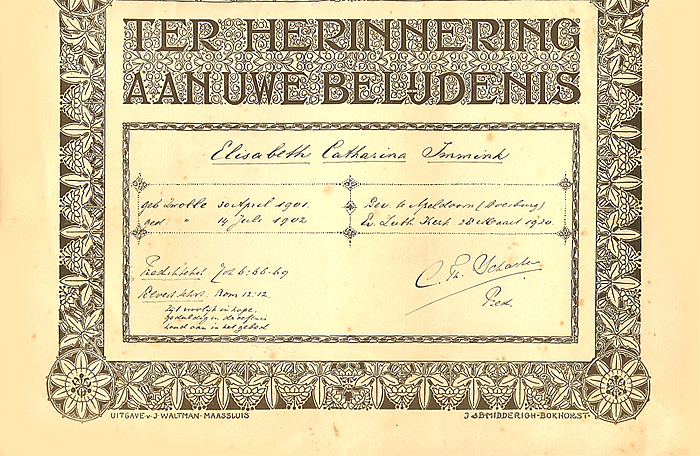 TER HERINNERING
AAN UWE BELIJDENIS
Elisabeth Catharina Immink
geb Zwolle 30 April 1901. Bev. te Apeldoorn (Doesburg)
ged " 14 Juli 1902 Ev. Luth Kerk 28 Maart 1920.
Predikttekst Joh 6: 66-69
Bevest. tekst. Rom 12:12.
Zijt vroolijk in hope,
geduldig in
houd aan in het gebed
C. Th. Scharten
Pred.
UITGAVE v. J. WALTMAN. MAASSLUIS
J. & B. MIDDERIGH-BOKHORST.